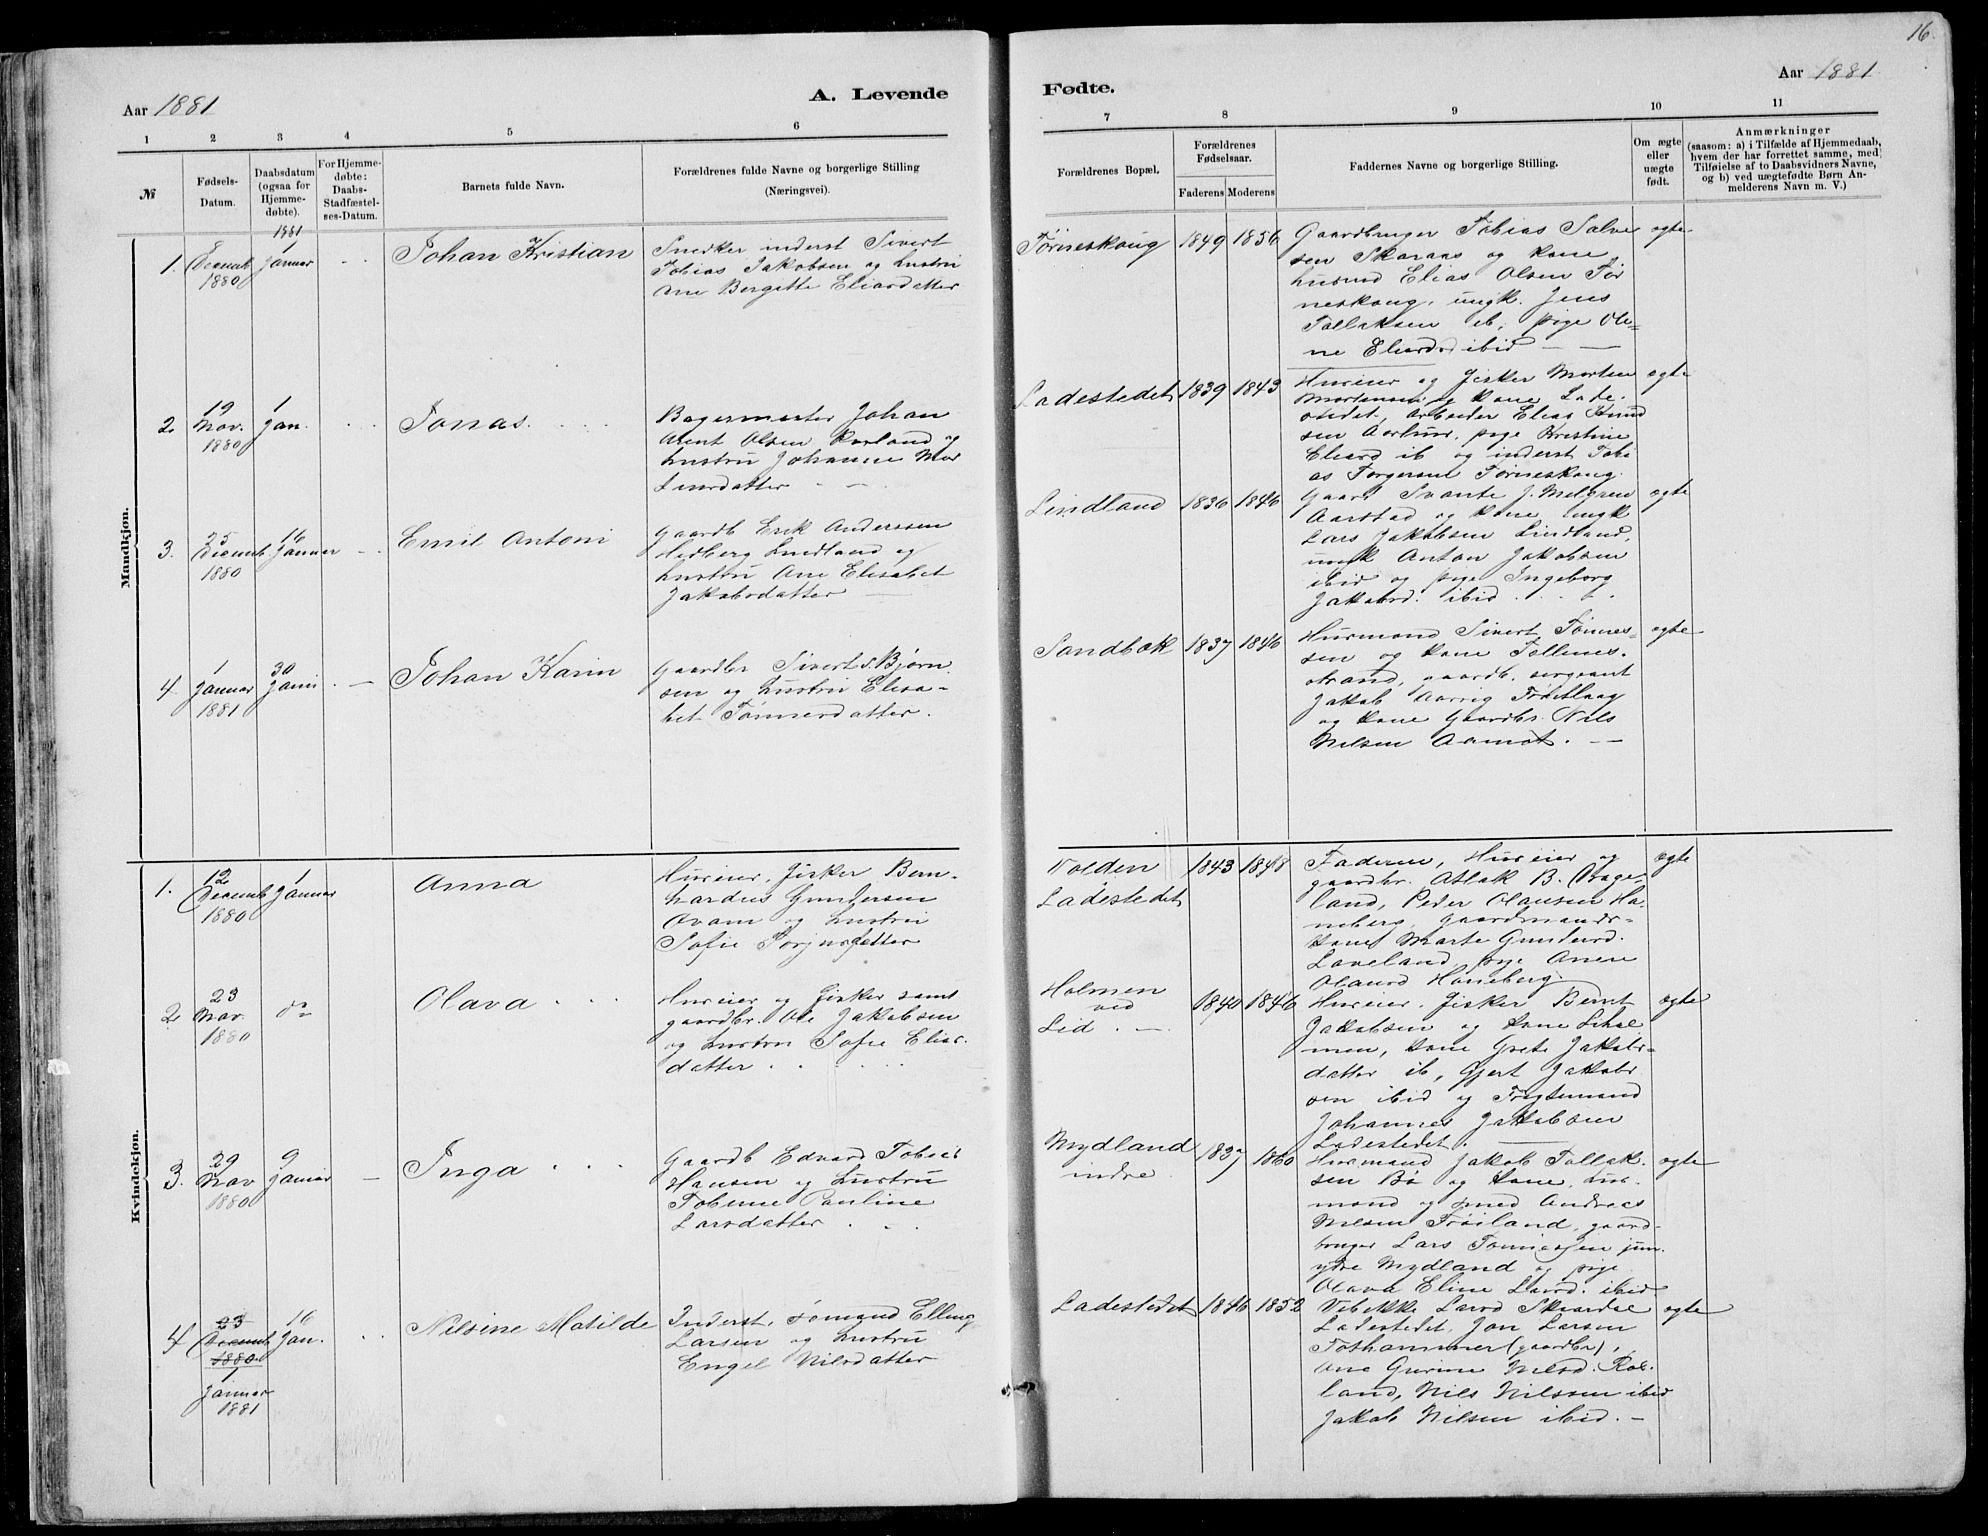 16.
Aar 1881
A. Levende
Fødte.
Aar 1881
1 2 3 4 5 6 7 8 9 10 11
№
Fødsels-Datum.
Daabsdatum (ogsaa for Hjemme-døbte).
For Hjemme-døbte: Daabs-Stadfæstel-ses-Datum.
Barnets fulde Navn.
Forældrenes fulde Navne og borgerlige Stilling
(Næringsvei).
Forældrenes Bopæl.
Forældrenes Fødselsaar.
Faderens Moderens
Faddernes Navne og borgerlige Stilling.
Om ægte eller uægte født.
Anmærkninger
(saasom: a) i Tilfælde af Hjemmedaab,
hvem der har forrettet samme, med
Tilføielse af to Daabsvidners Navne,
og b) ved uægtefødte Børn An-
melderens Navn m. V.)
Mandkjøn.
1881
1. Decemb 1880
1 Januar
Johan Kristian
Snedker inderst Sivert
Tobias Jakobsen og hustru
Ane Bergitte Eliasdatter
Tørneskoug 1849 1856
Gaardbruger Tobias Salve
sen Skaraas og kone
husmd Elias Olsen Tør
neskoug, ungk. Jens
Tollaksen ib, pige Ole-
ne Eliasd ibid
ægte
2. 19 Nov. 1880
1 Jan.
Jonas.
Bagermester Johan
Arent Olsen og
hustru Johanne Mor
tensdatter
Ladestedet 1839 1843
Huseier og fisker Morten
Mortensen og kone Lade-
stedet, arbeider Elias Knud
sen, pige Kristine
Eliasd ib og inderst Tobi
as Torgersen Tørneskoug.
ægte
3. 25 Decemb 1880
16 Januar
Emil Antoni
Gaardb Erik Anderssen
Hedberg Lindland og
hustru Ane Elisabet
Jakobsdatter
Lindland 1836 1846
Gaardb Svante J. Melgren
Aarstad og kone, ungk
Lars Jakobsen Lindland,
ungk Anton Jakobsen
ibid og pige Ingeborg
Jakobsd. ibid
ægte
4. 1 Januar 1881
30 Januar
Johan Karin
Gaardbr Sivert S. Bjørn
sen og hustru Elisa-
bet Tønnesdatter.
Sandbæk 1837 1846
Husmand Sivert Tønnes-
sen og kone Tollenes-
strand, gaardb. sergeant
Jakob Aarrig
og kone Gaardbr. Nils
Nilsen Aamot.
ægte
Kvindekjøn.
1. 12 Decemb 1880
1 Januar
Anna
Huseier, fisker Bern-
hardus Gundersen
og hustru
Sofie Torjusdatter
Volden Ladestedet 1843 1848
Faderen, Huseier og
gaardbr. Atlak B. Bage
land, Peder Olausen Ha
neberg, gaardmands-
kone Marte Gundersd.
Laveland, pige Anne
Olausd Haneberg
ægte
2. 23 Nov. 1880
do
Olava
Huseier og fisker samt
gaardbr. Ole Jakobsen
og hustru Sofie Elias-
datter
Holmen ved Lid 1840 1846
Huseier, fisker Bernt
Jakobsen og kone Lihol
men, kone Grete Jakobs-
datter ib, Gjert Jakob
sen ibid og Fragtemand
Johannes Jakobsen
Ladestedet.
ægte
3. 29 Nov 1880
9 Januar
Inga
Gaardb Edvard Tobias
Hansen og hustru
Tobine Pauline
Larsdatter
Mydland indre 1837 1860
Husmand Jakob Tollak-
sen Bø og kone, hus-
mand og smed Andreas
Nilsen Frøiland, gaard-
bruger Lars Tønnessen jun.
ydre Mydland og pige
Olava Eline Larsd. ibid
ægte
4. 23 Decemb 1880
1 Januar 1881
16 Jan.
Nilsine Matilde
Inderst, sømand Elling
Larsen og hustru
Engel Nilsdatter
Ladestedet 1846 1852
Vibekke Larsd Skaardal
Ladestedet, Jon Larsen
Fothammer (gaardbr),
Ane Gurine Nilsd. Røl-
land, Nils Nilssen ibid
Jakob Nilsen ibid.
ægte